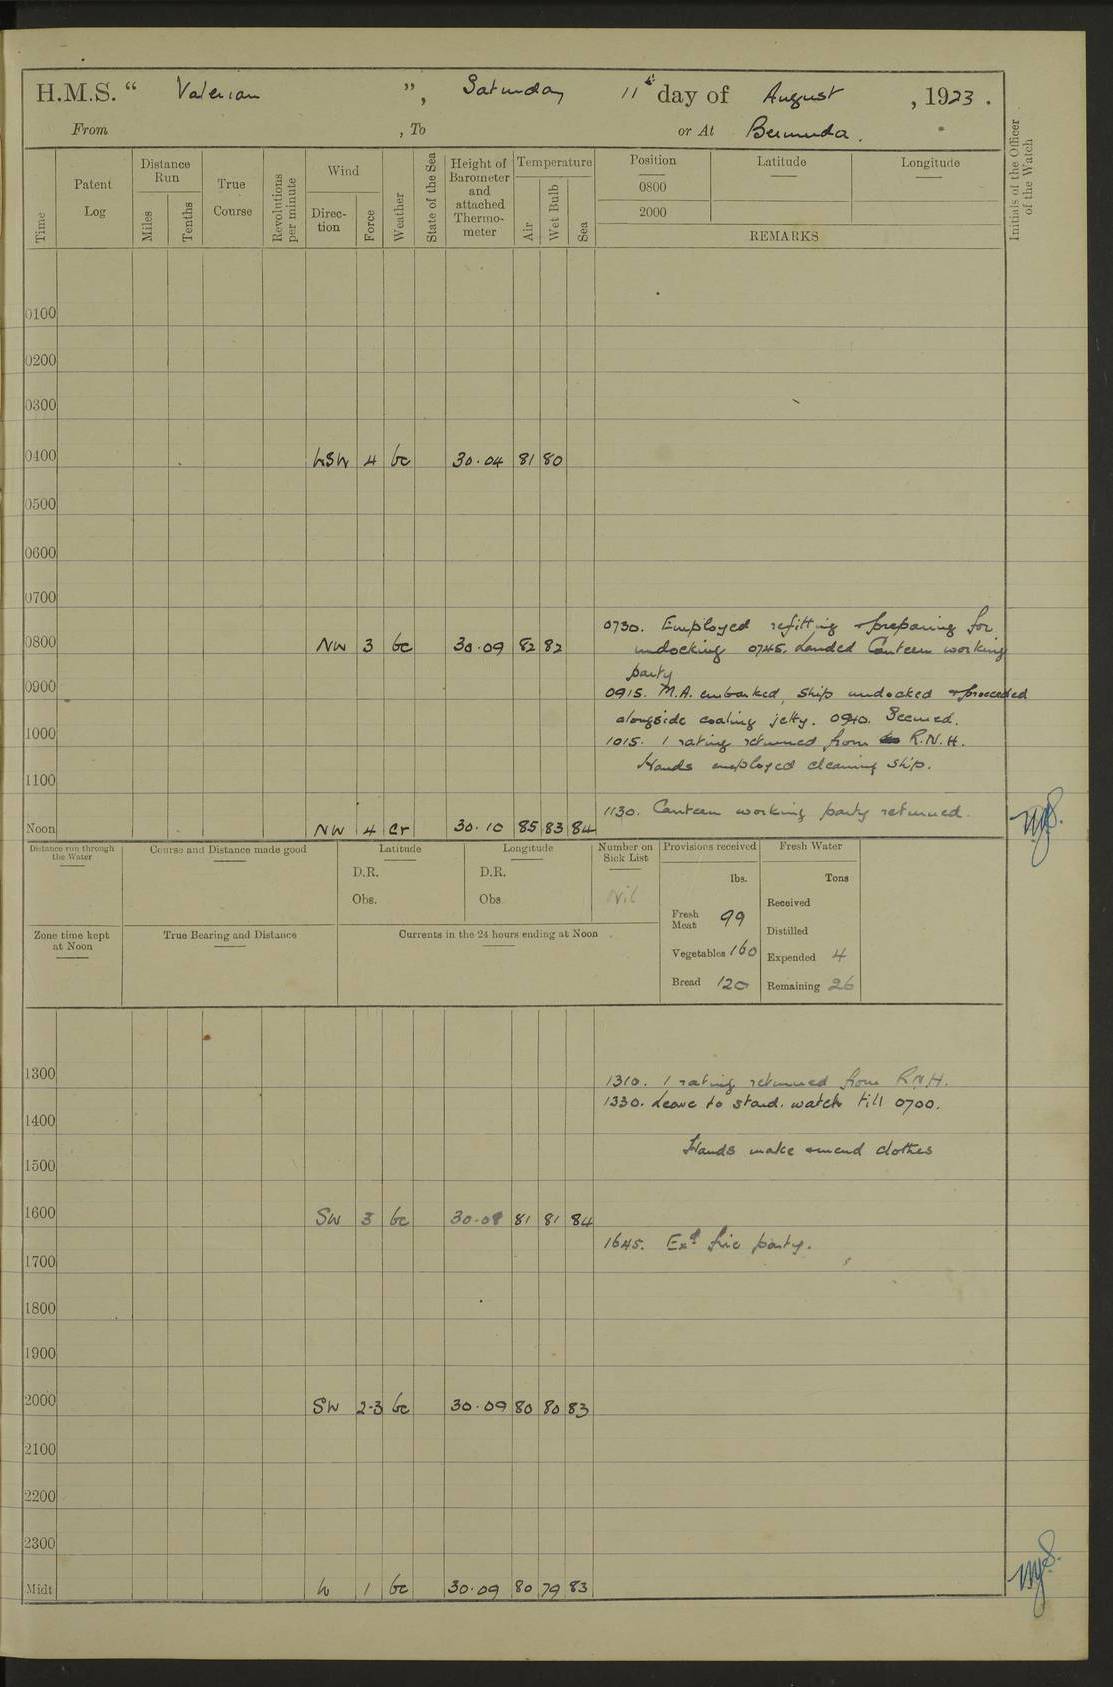 H.M.S. “ Valerian ”, Saturday 11th day of August , 1923 .
From , To or At Bermuda .
Time
Patent Log
Distance Run
Miles
Tenths
True Course
Revolutions per minute
Wind
Direc-tion
Force
Weather
State of the Sea
Height of Barometer and attached Thermo-meter
Temperature
Air
Wet Bulb
Sea
Position
Latitude
Longitude
0800
2000
REMARKS
Initials of the Officer of the Watch
0100
0200
0300
0400 WSW 4 bc 30.04 81 80
0500
0600
0700
0730. Employed refitting & preparing for
0800 NW 3 bc 30.09 82 82 undocking 0745. Landed Canteen working
party
0900 0915. M.A. embarked, ship undocked & proceeded
alongside coaling jetty. 0940. Secured.
1000 1015. 1 rating returned from R.N.H.
Hands employed cleaning ship.
1100
1130. Canteen working party returned.
Noon NW 4 cr 30.10 85 83 84
Distance run through the Water
Course and Distance made good
Latitude
D.R.
Obs.
Longitude
D.R.
Obs.
Number on Sick List
Nil
Provisions received
lbs.
Fresh Meat 99
Vegetables 160
Bread 120
Fresh Water
Tons
Received
Distilled
Expended 4
Remaining 26
Zone time kept at Noon
True Bearing and Distance
Currents in the 24 hours ending at Noon
1300 1310. 1 rating returned from R.N.H.
1330. Leave to stand. watch till 0700.
1400
Hands make & mend clothes
1500
1600 SW 3 bc 30.08 81 81 84
1645. Exd fire party.
1700
1800
1900
2000 SW 2-3 bc 30.09 80 80 83
2100
2200
2300
Midt W 1 bc 30.09 80 79 83